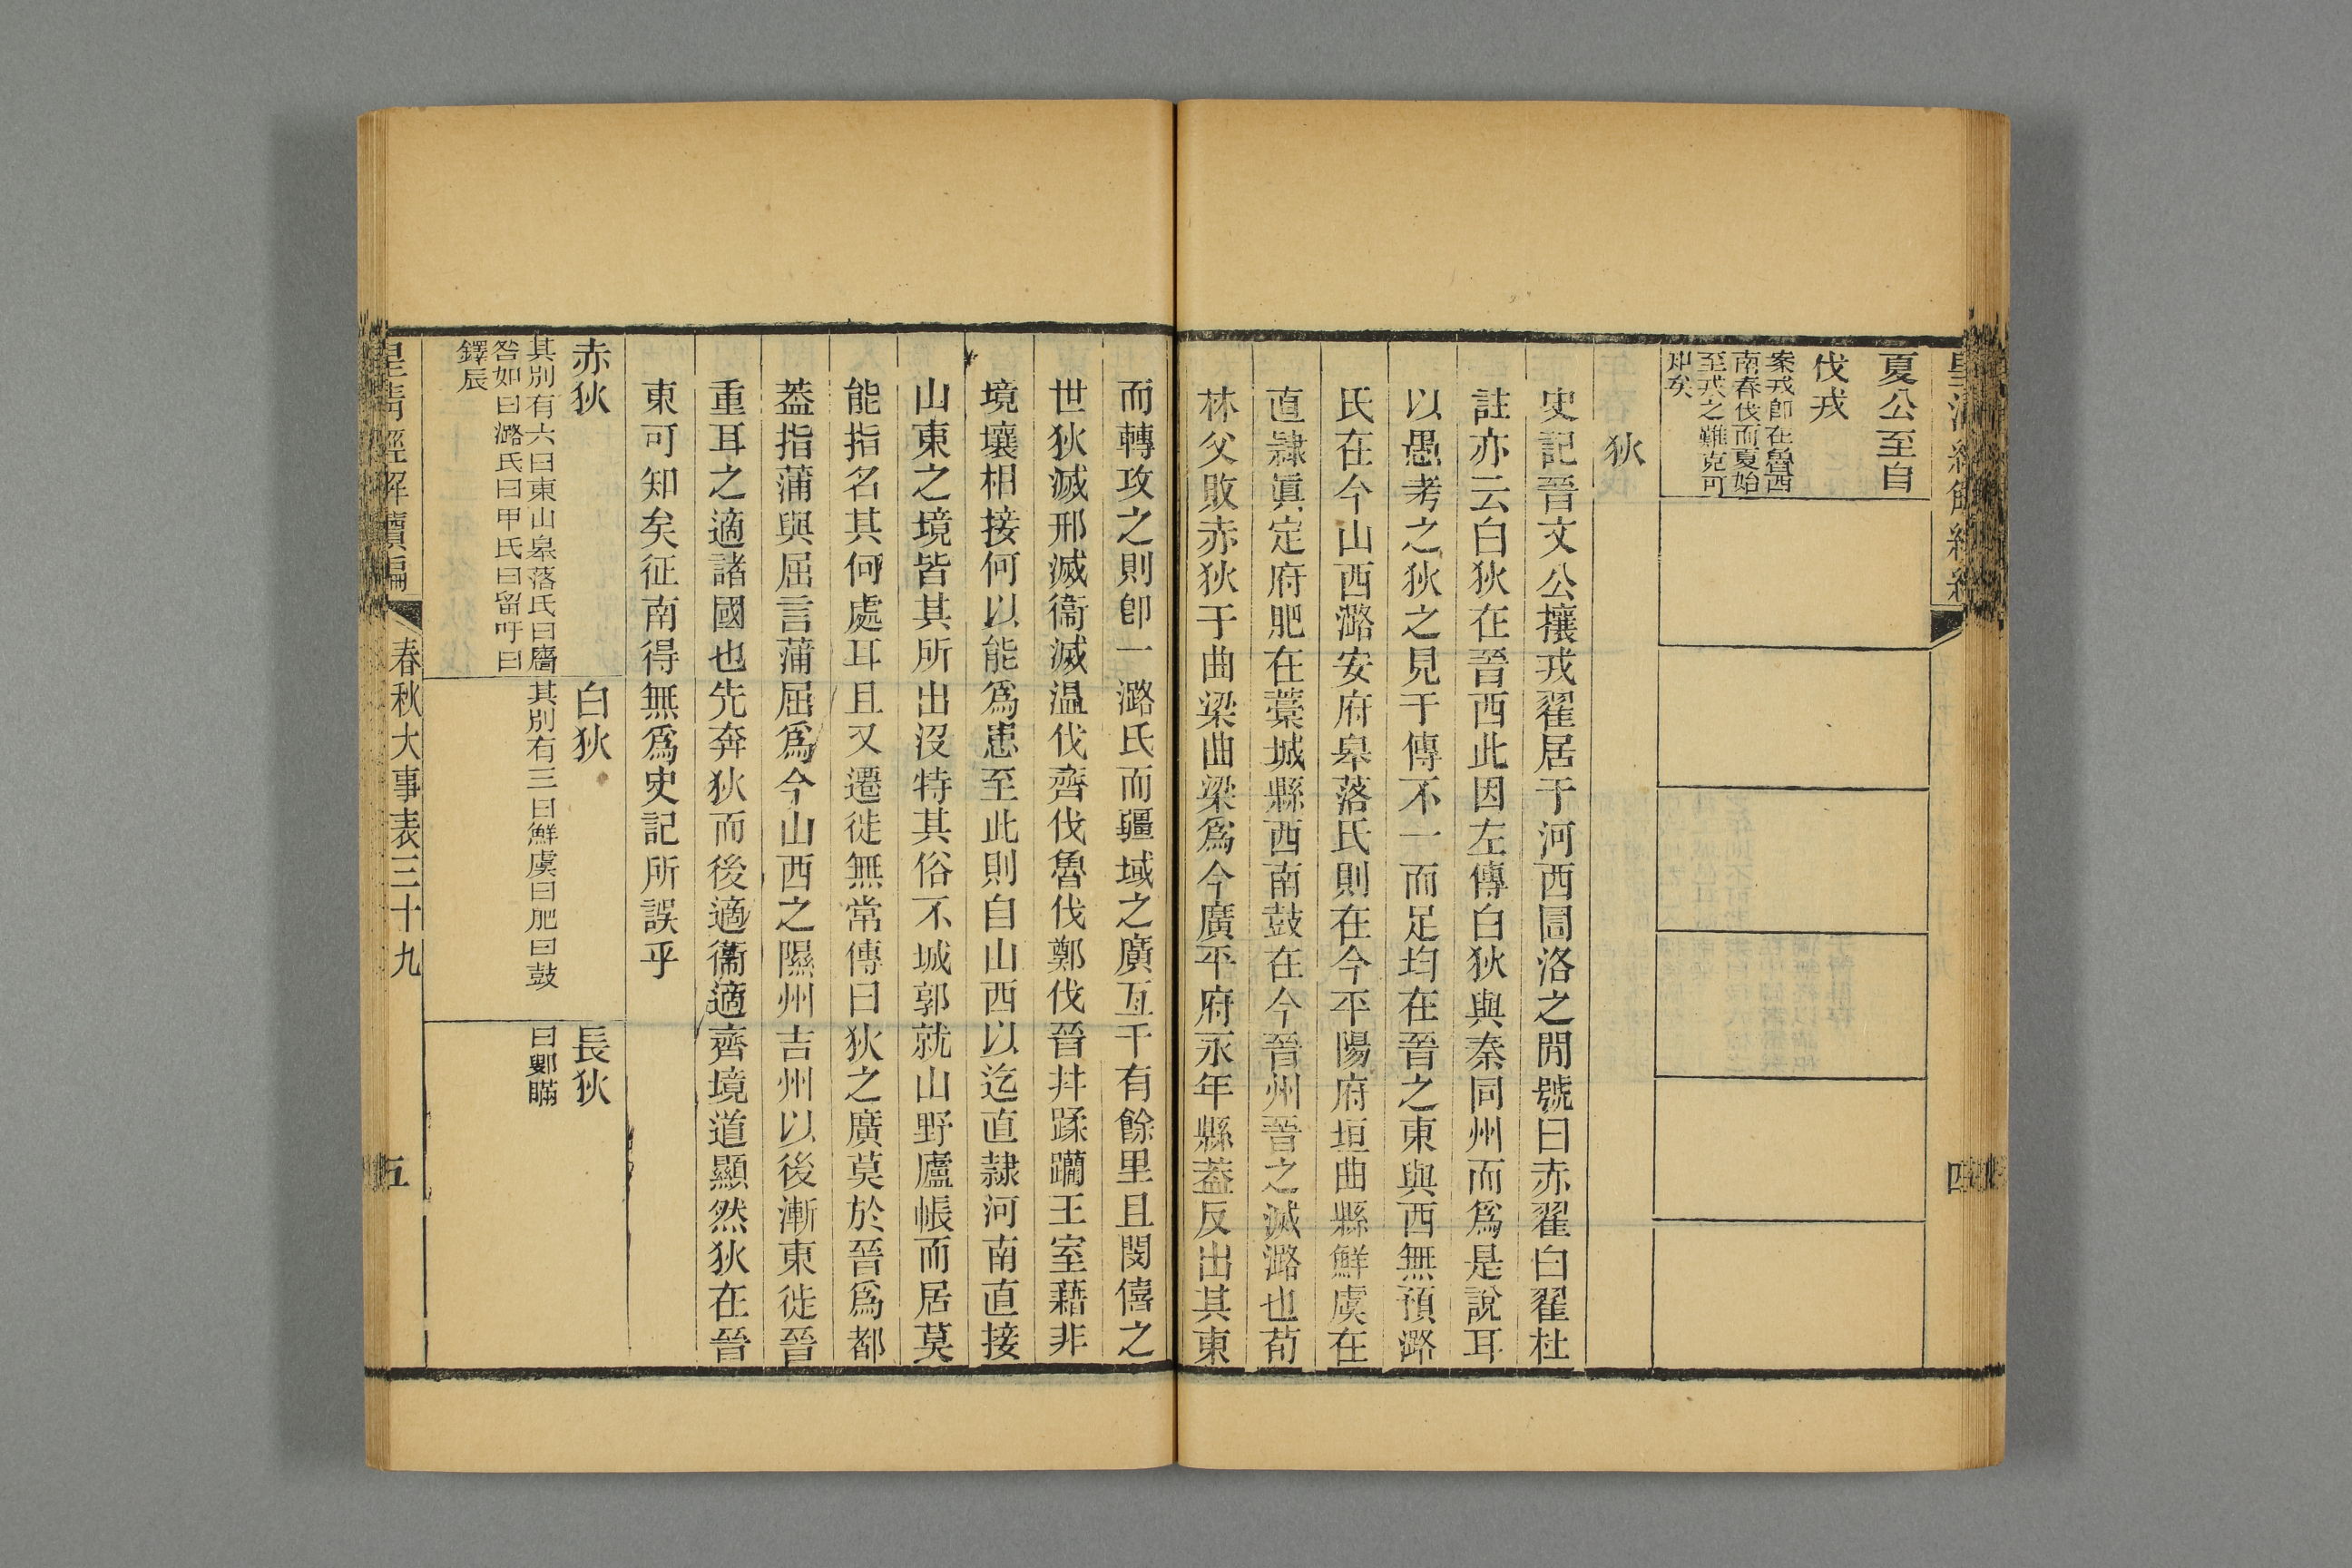 皇清經解續編
四
夏公至自
伐戎
案戎卽在魯西
南春伐而夏始
至戎之難克可
知矣
狄
史記晉文公攘戎翟居于河西圁洛之閒號曰赤翟白翟杜
註亦云白狄在晉西此因左傳白狄與秦同州而爲是說耳
以愚考之狄之見于傳不一而足均在晉之東與西無預潞
氏在今山西潞安府皋落氏則在今平陽府垣曲縣鮮虞在
直隷眞定府肥在藁城縣西南鼓在今晉州晉之滅潞也荀
林父敗赤狄于曲梁曲梁爲今廣平府永年縣葢反出其東
而轉攻之則卽一潞氏而疆域之廣亙千有餘里且閔僖之
世狄滅邢滅衞滅温伐齊伐魯伐鄭伐晉幷蹂躪王室藉非
境壤相接何以能爲患至此則自山西以迄直隷河南直接
山東之境皆其所出沒特其俗不城郭就山野廬帳而居莫
能指名其何處耳且又遷徙無常傳曰狄之廣莫於晉爲都
葢指蒲與屈言蒲屈爲今山西之隰州吉州以後漸東徙晉
重耳之適諸國也先奔狄而後適衞適齊境道顯然狄在晉
東可知矣征南得無爲史記所誤乎
赤狄
其別有六曰東山皋落氏曰廧
咎如曰潞氏曰甲氏曰留吁曰
鐸辰
白狄
其別有三曰鮮虞曰肥曰鼓
長狄
曰鄋瞞
皇清經解續編
春秋大事表三十九
五